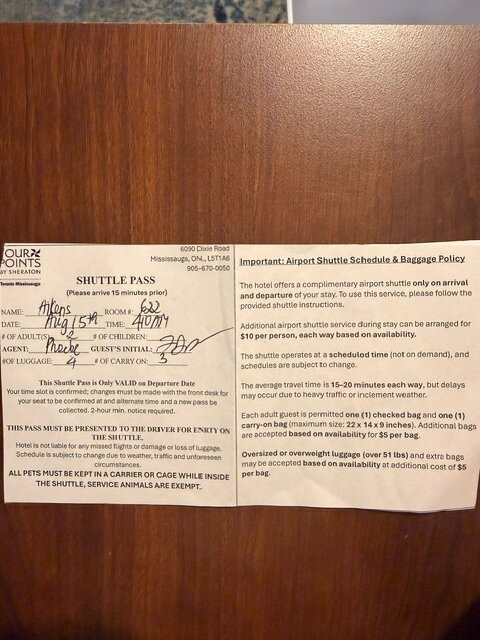 OUR
POINTS
BY SHERATON
Toronto Mississauga
6090 Dixie Road
Mississauga, ON., L5T1A6
905-670-0050
SHUTTLE PASS
(Please arrive 15 minutes prior)
NAME: Aikens ROOM #: 622
DATE: Aug 15th TIME:
# OF ADULT(S): 2 # OF CHILDREN:
AGENT: Phoebe GUEST'S INITIAL:
#OF LUGGAGE: 4 # OF CARRY ON: 3
This Shuttle Pass is Only VALID on Departure Date
Your time slot is confirmed; changes must be made with the front desk for
your seat to be confirmed at and alternate time and a new pass to be
collected. 2-hour min. notice required.
THIS PASS MUST BE PRESENTED TO THE DRIVER FOR ENRTY ON
THE SHUTTLE.
Hotel is not liable for any missed flights or damage or loss of luggage.
Schedule is subject to change due to weather, traffic and unforeseen
circumstances.
ALL PETS MUST BE KEPT IN A CARRIER OR CAGE WHILE INSIDE
THE SHUTTLE, SERVICE ANIMALS ARE EXEMPT..
Important: Airport Shuttle Schedule & Baggage Policy
The hotel offers a complimentary airport shuttle only on arrival
and departure of your stay. To use this service, please follow the
provided shuttle instructions.
Additional airport shuttle service during stay can be arranged for
$10 per person, each way based on availability.
The shuttle operates at a scheduled time (not on demand), and
schedules are subject to change.
The average travel time is 15–20 minutes each way, but delays
may occur due to heavy traffic or inclement weather.
Each adult guest is permitted one (1) checked bag and one (1)
carry-on bag (maximum size: 22 x 14 x 9 inches). Additional bags
are accepted based on availability for $5 per bag.
Oversized or overweight luggage (over 51 lbs) and extra bags
may be accepted based on availability at additional cost of $5
per bag.